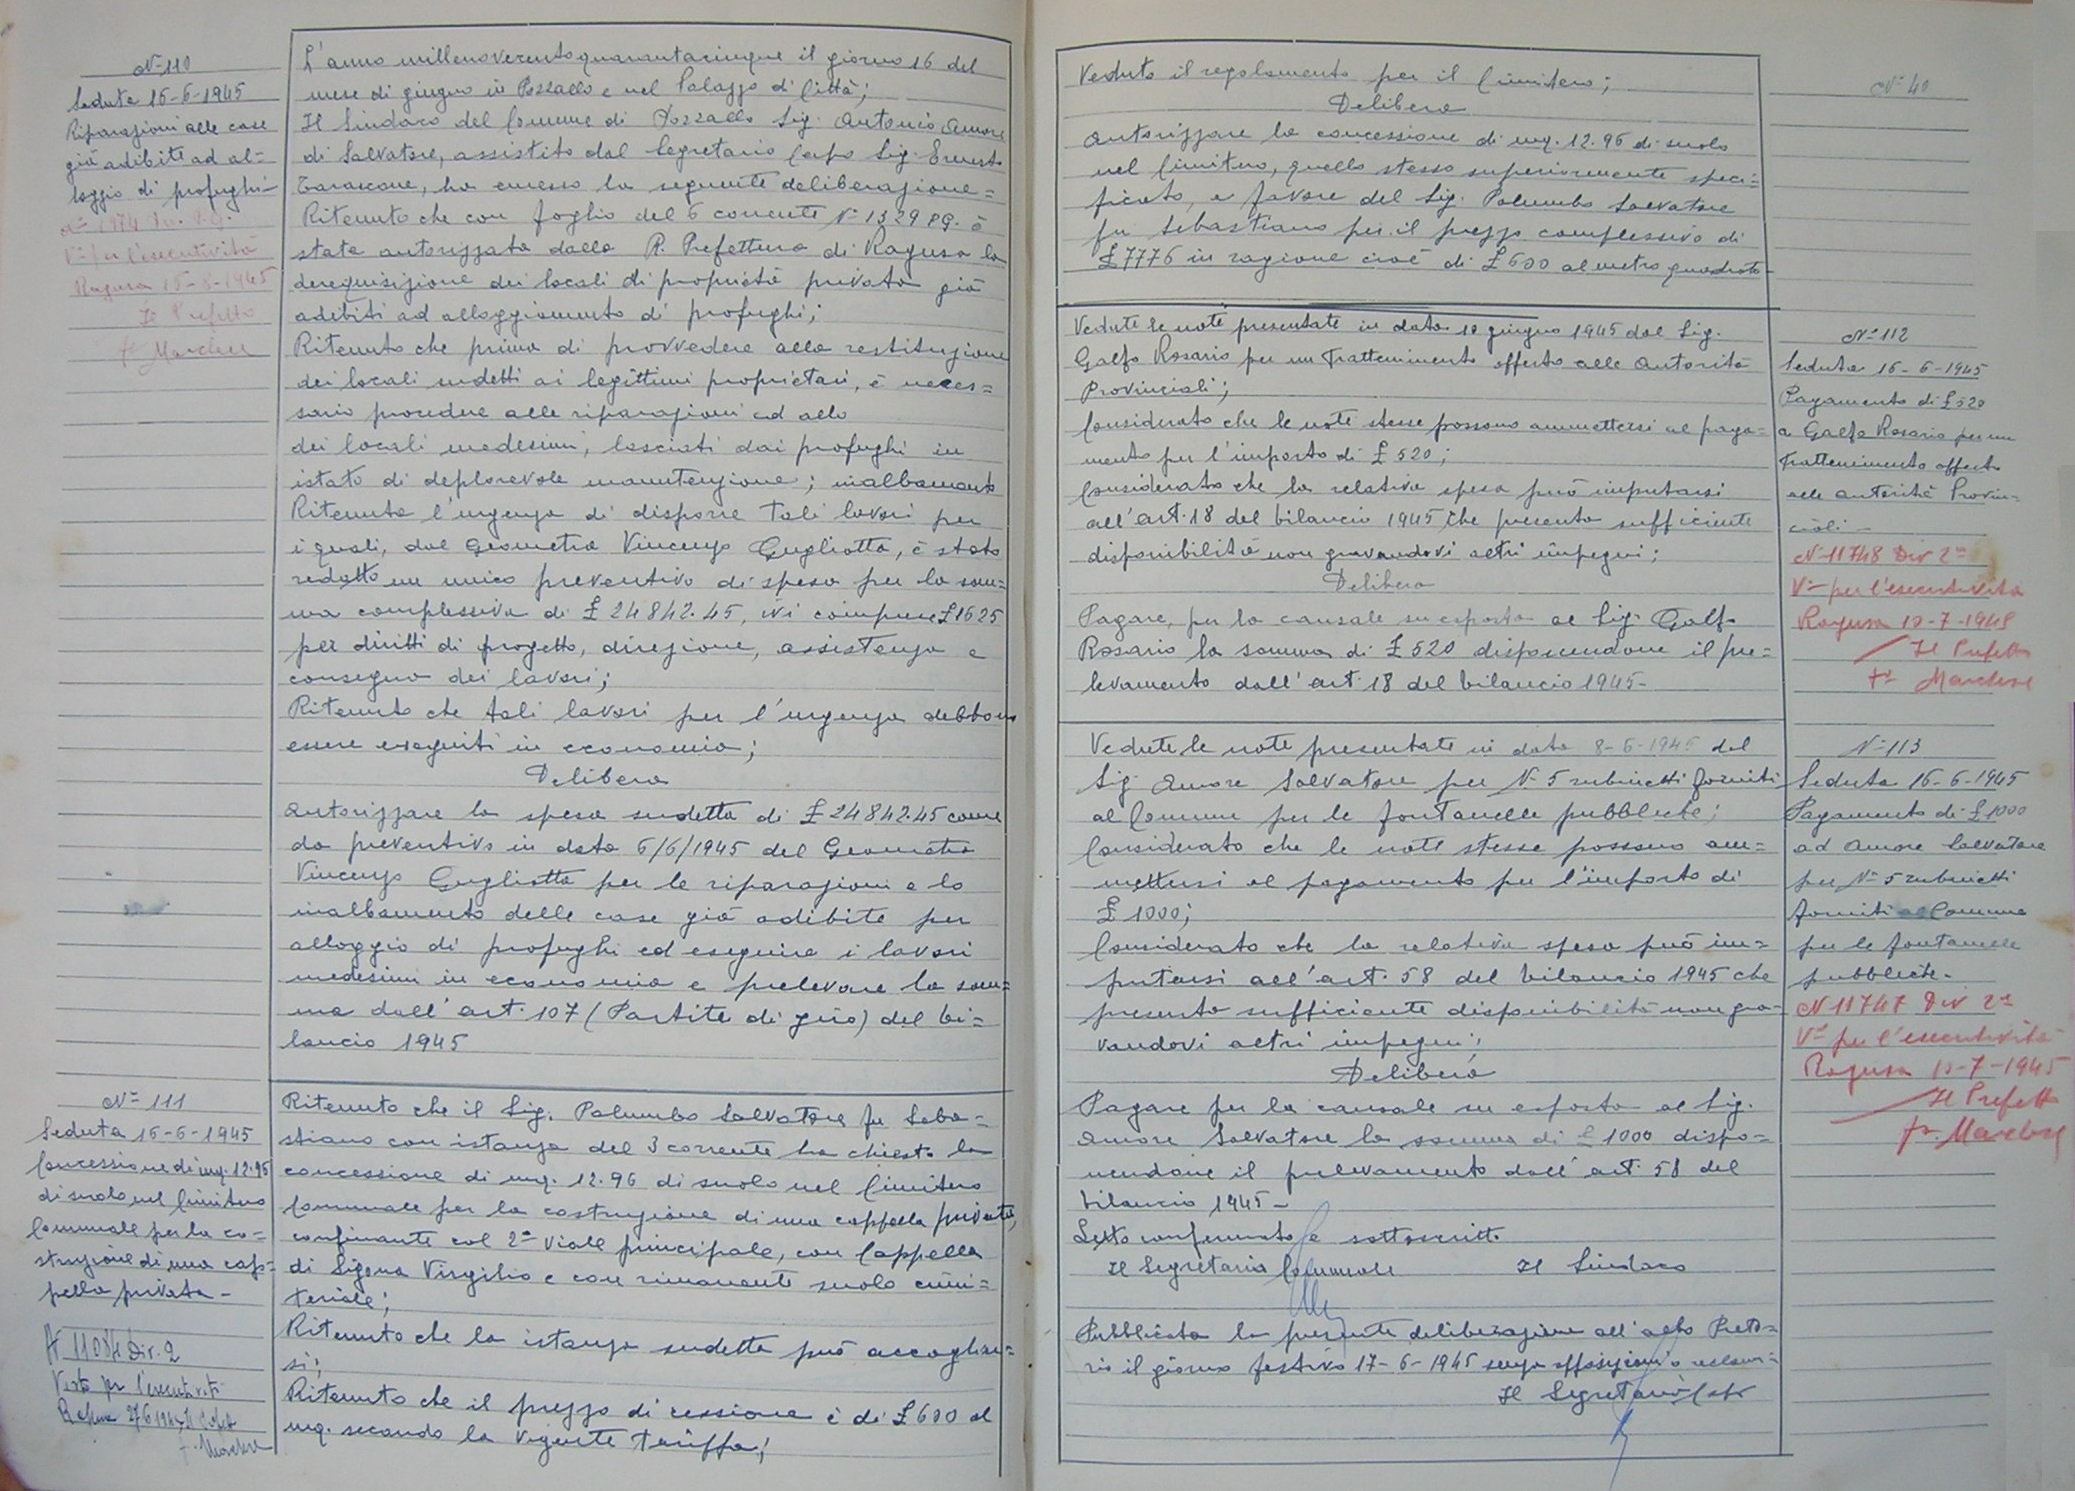 N° 110
Seduta 16-6-1945
Riparazioni alle case
già adibiti ad al=
loggio di profughi-
N° 1974 Div. P.G.
V° per l'esecutività
Ragusa 16-8-1945
Il Prefetto
f° Marchese
L'anno millenovecentoquarantacinque il giorno 16 del
mese di giugno in Pozzallo e nel Palazzo di Città;
Il Sindaco del Comune di Pozzallo Sig. Antonio Amore
di Salvatore, assistito dal Segretario Capo Sig. Ernesto
Tarascone, ha emesso la seguente deliberazione=
Ritenuto che con foglio del 6 corrente N° 1329 P.G. è
stata autorizzata dalla R. Prefettura di Ragusa la
derequisizione dei locali di proprietà privata già
adibiti ad alloggiamento di profughi;
Ritenuto che prima di provvedere alla restituzione
dei locali sudetti ai legittimi proprietari, è neces=
sario procedere alle riparazioni ed allo
dei locali medesimi, lasciati dai profughi in
istato di deplorevole manutenzione; inalbamento
Ritenuta l'urgenza di disporre tali lavori per
i quali, dal Geometra Vincenzo Gugliotta, è stato
redatto un unico preventivo di spesa per la som=
ma complessiva di £ 24842.45, ivi comprese £1625
per diritti di progetto, direzione, assistenza e
consegna dei lavori;
Ritenuto che tali lavori per l'urgenza debbono
essere eseguiti in economia;
Delibera
autorizzare la spesa sudetta di £ 24842.45 come
da preventivo in data 6/6/1945 del Geometra
Vincenzo Gugliotta per le riparazioni e lo
inalbamento delle case già adibite per
alloggio di profughi ed eseguire i lavori
medesimi in economia e prelevare la som=
ma dall'art. 107 (Partite di giro) del bi=
lancio 1945
N° 111
Seduta 16-6-1945
Concessione di mq. 12.96
di suolo nel Cimitero
Comunale per la co=
struzione di una cap=
pella privata-
N 11084 Div. 2
Visto per l'esecutività
Ragusa 27 6 1945 Il Prefetto
f. Marchese
Ritenuto che il Sig. Palumbo Salvatore fu Seba=
stiano con istanza del 3 corrente ha chiesto la
concessione di mq. 12.96 di suolo nel Cimitero
Comunale per la costruzione di una cappella privata,
confinante col 2° viale principale, con Cappella
di Sigona Virgilio e con rimanente suolo cimi=
teriale;
Ritenuto che la istanza sudetta può accoglier=
si;
Ritenuto che il prezzo di cessione è di £600 al
mq. secondo la vigente tariffa;
N° 40
Veduto il regolamento per il Cimitero;
Delibera
autorizzare la concessione di mq. 12.96 di suolo
nel Cimitero, quello stesso superiormente speci=
ficato, a favore del Sig. Palumbo Salvatore
fu Sebastiano per il prezzo complessivo di
£7776 in ragione cioè di £600 al metro quadrato-
Vedute le note presentate in data 10 giugno 1945 dal Sig.
Galfo Rosario per un trattenimento offerto alle Autorità
Provinciali;
Considerato che le note stesse possono ammettersi al paga=
mento per l'importo di £ 520;
Considerato che la relativa spesa può imputarsi
all'art. 18 del bilancio 1945 che presenta sufficiente
disponibilità non gravandovi altri impegni;
Delibera
Pagare, per la causale su esposta al Sig. Galfo
Rosario la somma di £ 520 disponendone il pre=
levamento dall'art. 18 del bilancio 1945-
N° 112
Seduta 16-6-1945
Pagamento di £520
a Galfo Rosario per un
trattenimento offerto
alle autorità Provin=
ciali-
N° 11748 Div 2°
V° per l'esecutività
Ragusa 10-7-1945
Il Prefetto
f° Marchese
Vedute le note presentate in data 8-6-1945 dal
Sig. Amore Salvatore per N° 5 rubinetti forniti
al Comune per le fontanelle pubbliche;
Considerato che le note stesse possono am=
mettersi al pagamento per l'importo di
£ 1000;
Considerato che la relativa spesa può im=
putarsi all'art. 58 del bilancio 1945 che
presenta sufficiente disponibilità non gra=
vandovi altri impegni;
Delibera
Pagare per la causale su esposta al Sig.
Amore Salvatore la somma di £ 1000 dispo=
nendone il prelevamento dall'art. 58 del
bilancio 1945-
Letto confermato e sottoscritto
Il Segretario Comunale Il Sindaco
Pubblicata la presente deliberazione all'albo Preto=
rio il giorno festivo 17-6-1945 senza opposizioni o reclami-
Il Segretario Capo
N° 113
Seduta 16-6-1945
Pagamento di £1000
ad Amore Salvatore
per N° 5 rubinetti
forniti al Comune
per le fontanelle
pubbliche-
N 11747 Div 2°
V° per l'esecutività
Ragusa 10-7-1945
Il Prefetto
f. Marchese